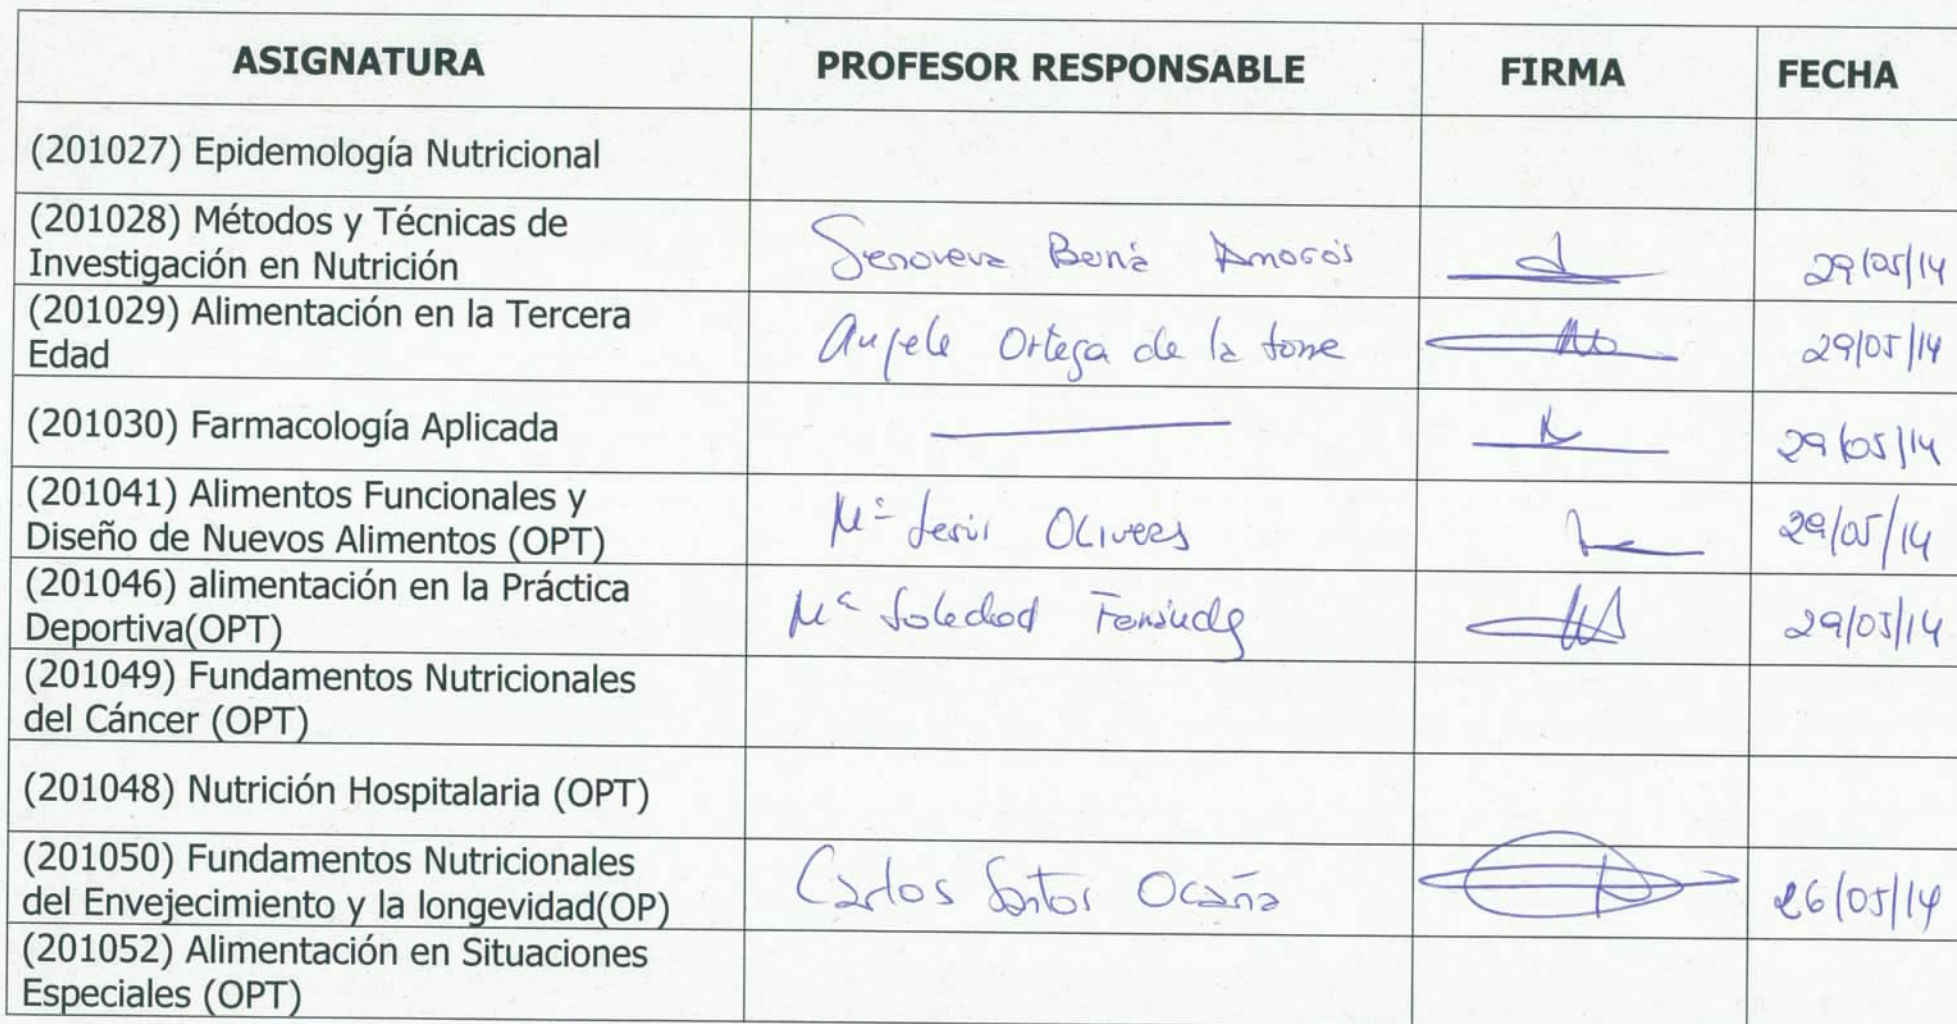 ASIGNATURA PROFESOR RESPONSABLE FIRMA FECHA
(201027) Epidemología Nutricional
(201028) Métodos y Técnicas de
Investigación en Nutrición
Genoveva Berná Amorós 29/05/14
(201029) Alimentación en la Tercera
Edad
Angele Ortega de la torre 29/05/14
(201030) Farmacología Aplicada 29/05/14
(201041) Alimentos Funcionales y
Diseño de Nuevos Alimentos (OPT)
Mª Jesús Olivera 29/05/14
(201046) alimentación en la Práctica
Deportiva(OPT)
Mª Soledad Fernández 29/05/14
(201049) Fundamentos Nutricionales
del Cáncer (OPT)
(201048) Nutrición Hospitalaria (OPT)
(201050) Fundamentos Nutricionales
del Envejecimiento y la longevidad(OP)
Carlos Santos Ocaña 26/05/14
(201052) Alimentación en Situaciones
Especiales (OPT)